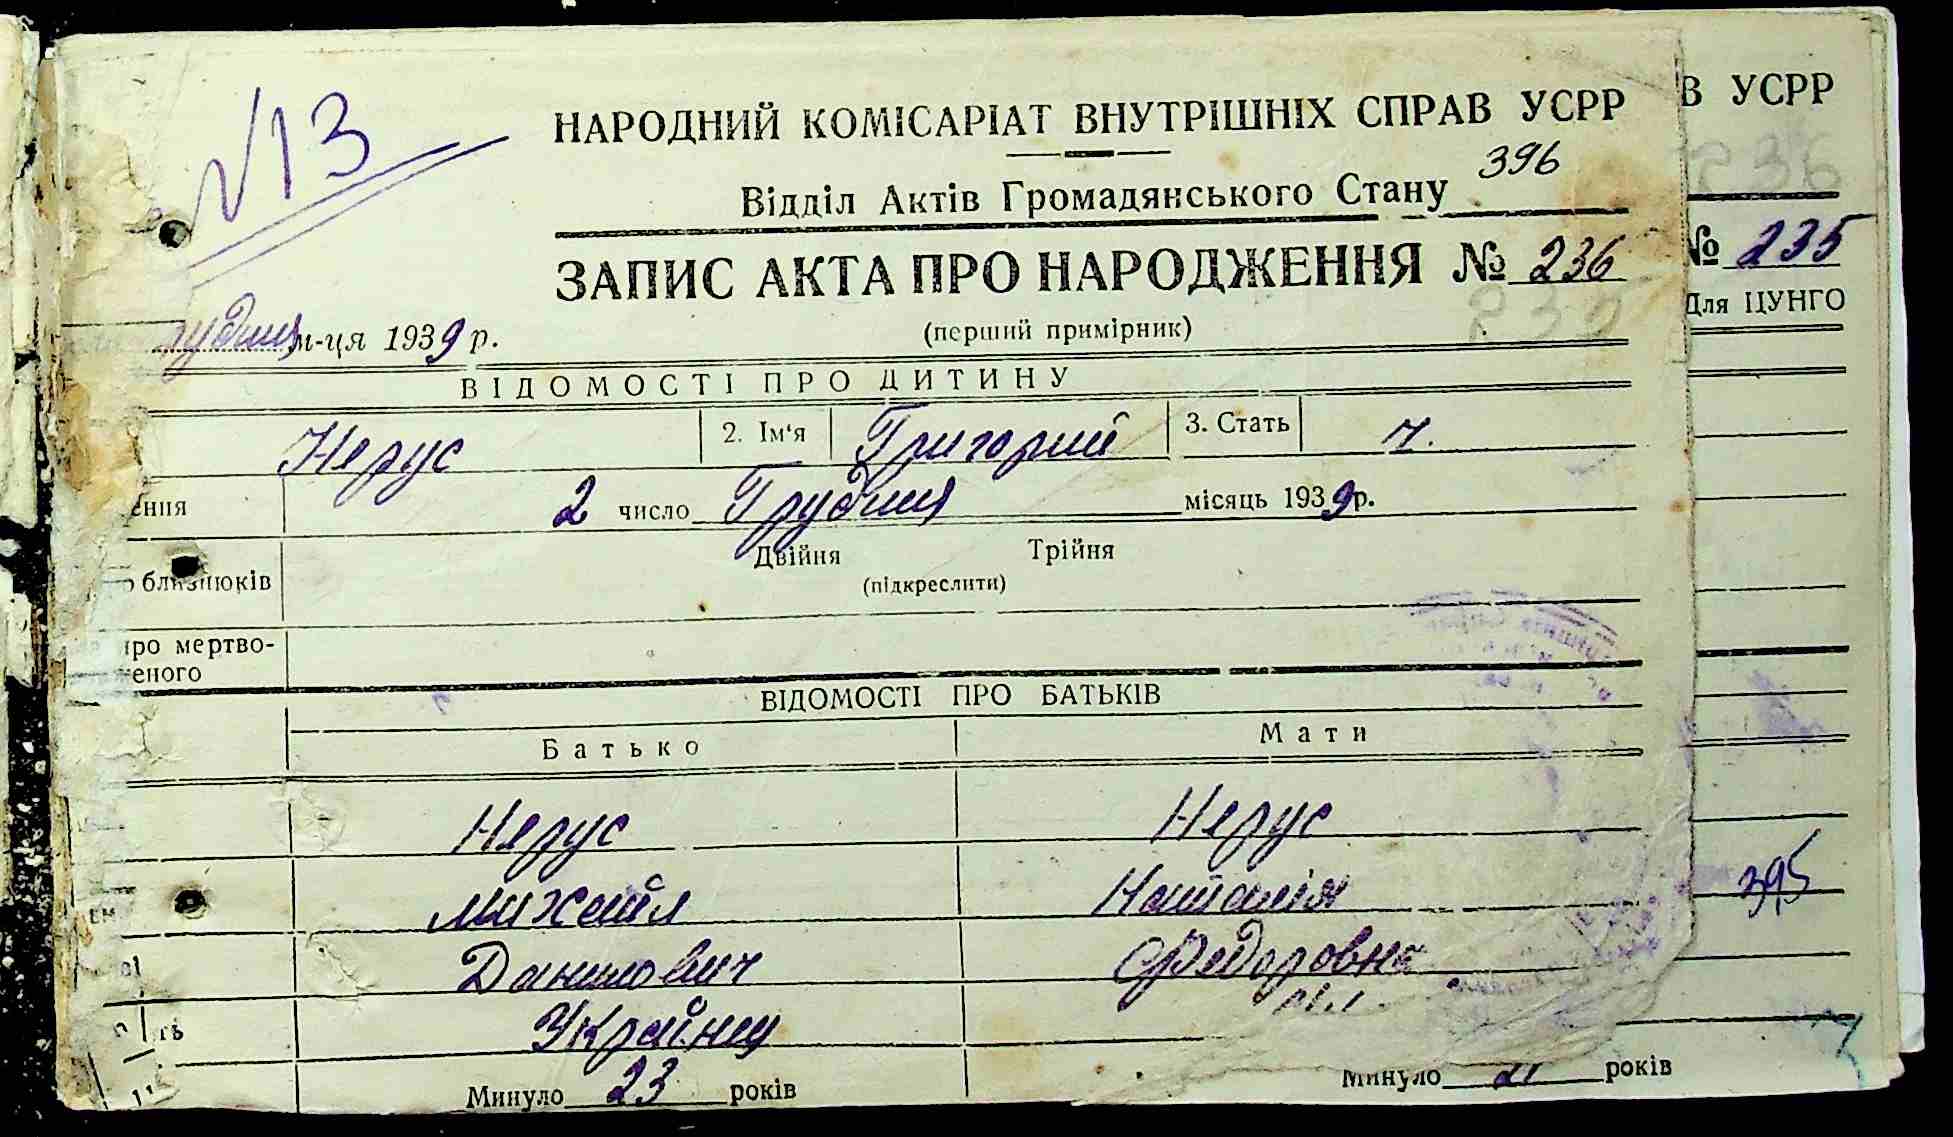 №13
НАРОДНИЙ КОМІСАРІАТ ВНУТРІШНІХ СПРАВ УСРР
В УСРР
396
236
Відділ Актів Громадянського Стану
ЗАПИС АКТА ПРО НАРОДЖЕННЯ № 236
№ 235
Для ЦУНГО
рудня м-ця 1939 р.
(перший примірник)
ВІДОМОСТІ ПРО ДИТИНУ
Нерус 2. Ім'я Григорий 3. Стать ч.
ення 2 число Грудня місяць 1939 р.
Двійня Трійня
о близнюків (підкреслити)
про мертво-
еного
ВІДОМОСТІ ПРО БАТЬКІВ
Батько Мати
Нерус Нерус
Михайл Наталія 395
Данилович Федоровна
ть Українец
Минуло 23 років Минуло 21 років